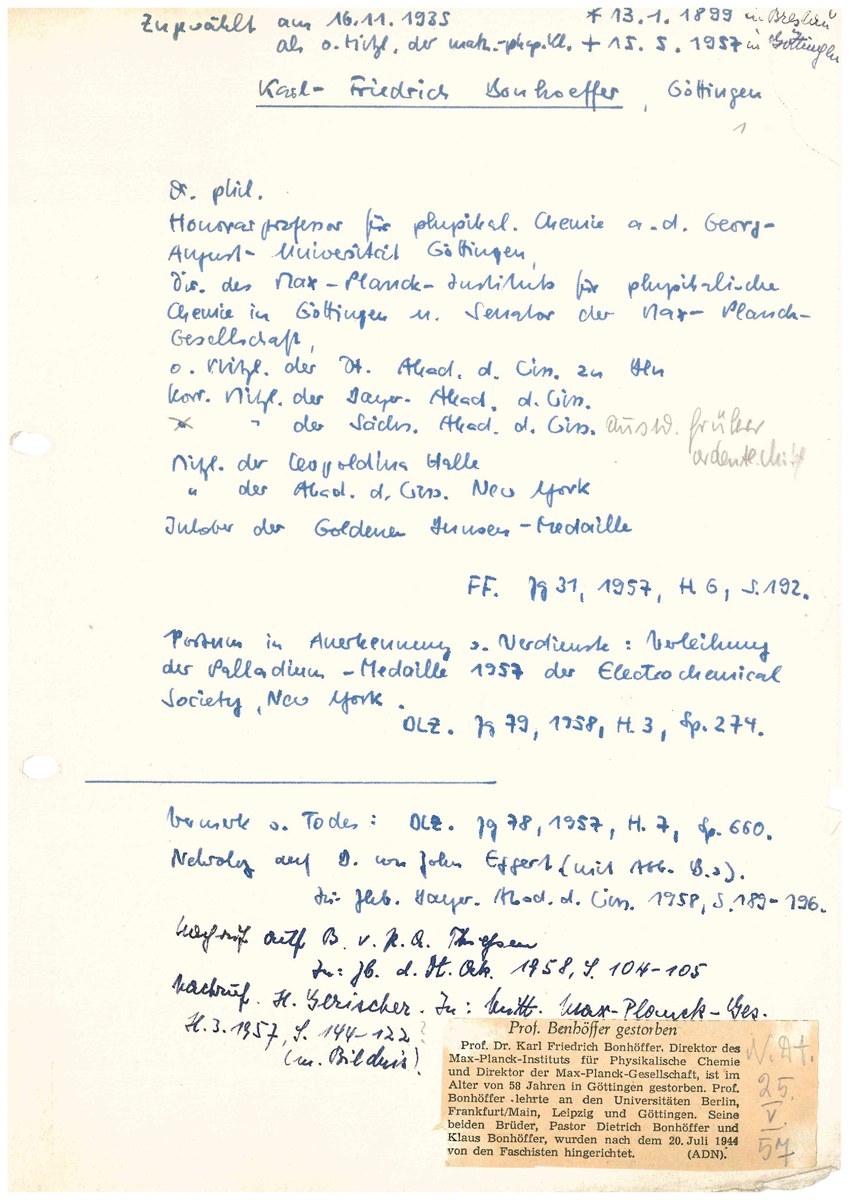 Zugewählt am 16.11.1935 * 13.1.1899 in Breslau
als o. Mitgl. der math.-phys. Kl. + 15.5.1957 in Göttingen
Karl-Friedrich Bonhoeffer, Göttingen
1
Dr. phil.
Honorarprofessor für physikal. Chemie a.d. Georg-
August-Universität Göttingen,
Dir. des Max-Planck-Instituts für physikalische
Chemie in Göttingen u. Senator der Max-Planck-
Gesellschaft,
o. Mitgl. der Dt. Akad. d. Wiss. zu Bln
Korr. Mitgl. der Bayer. Akad. d. Wiss.
" der Sächs. Akad. d. Wiss. ausw. früher
ordentl. Mitgl
Mitgl. der Leopoldina Halle
" der Akad. d. Wiss. New York
Inhaber der Goldenen Bunsen-Medaille
FF. Jg 31, 1957, H. 6, S. 192.
Postum in Anerkennung s. Verdienste: Verleihung
der Palladium-Medaille 1957 der Electrochemical
Society, New York.
DLZ. Jg 79, 1958, H. 3, Sp. 274.
Vermerk s. Todes: DLZ. Jg 78, 1957, H. 7, Sp. 660.
Nekrolog auf B. von John Eggert (mit Abb. B.s).
In: Jhb. Bayer. Akad. d. Wiss. 1958, S. 189-196.
Nachruf auf B. v. P. A. Thiessen
In: Jb. d. Dt. Ak. 1958, S. 104-105
Nachruf. H. Gerischer. In: Mitt. Max-Planck-Ges.
H. 3. 1957, S. 144-122?
(m. Bildnis)
Prof. Benhöffer gestorben
Prof. Dr. Karl Friedrich Bonhöffer, Direktor des
Max-Planck-Instituts für Physikalische Chemie
und Direktor der Max-Planck-Gesellschaft, ist im
Alter von 58 Jahren in Göttingen gestorben. Prof.
Bonhöffer lehrte an den Universitäten Berlin,
Frankfurt/Main, Leipzig und Göttingen. Seine
beiden Brüder, Pastor Dietrich Bonhöffer und
Klaus Bonhöffer, wurden nach dem 20. Juli 1944
von den Faschisten hingerichtet. (ADN).
N. Dt.
25.
V.
57